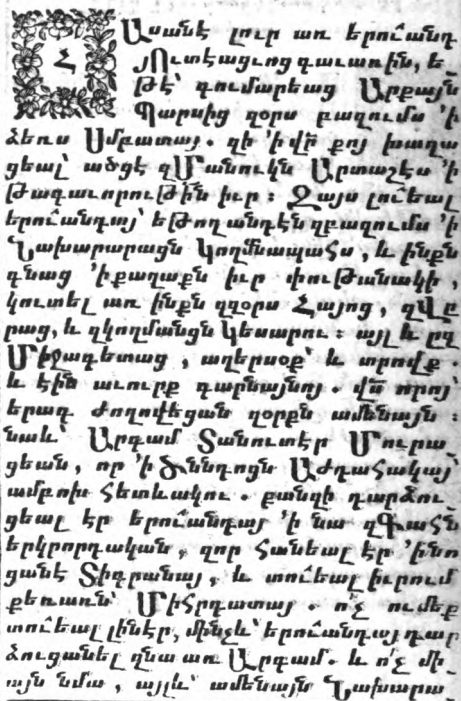 Հ Ասանէ լուր առ երուանդ
յՈւտէացւոց գաւառին, ե֊
թէ՝ գումարեաց Արքայն
Պարսից զօրս բազումս ՚ի
ձեռս Սմբատայ. զի ՚ի վր քոյ խաղա
ցեալ՝ ածցէ զՄանուկն Արտաշէս ՚ի
Թագաւորութի իւր։ Զայս լուեալ
երուանդայ՝ եթող անդէն զբազումս ՚ի
Նախարարացն կողմնապահս, և ինքն
գնաց ՚ի քաղաքն իւր փութանակի,
կուտել առ ինքն զզօրս Հայոց, զՎը
րաց, և զկողմանցն կեսարու։ այլ և ըզ
Միջագետաց, աղերսօք՝ և տրովք.
և էին աւուրք գարնայնոյ. վս որոյ՝
երագ ժողովեցան զօրքն ամենայն։
նաև՝ Արգամ Տանուտէր Մուրա֊
ցեան, որ ՚ի ծննդոցն Աժդահակայ՝
ամբոխ հետևակու. քանզի դարձու֊
ցեալ էր երուանդայ ՚ի նա զԳահն
երկրորդական, զոր հանեալ էր ՚ինո
ցանէ Տիգրանայ, և տուեալ իւրում
քեռառն՝ Միհրդատայ. ո՛չ ումեք
տուեալ լինէր, մինչև՝ երուանդայ դար
ձուցանել զնա առ Արգամ. և ո՛չ մի֊
այն նմա, այլև՝ ամենայն Նախարա֊